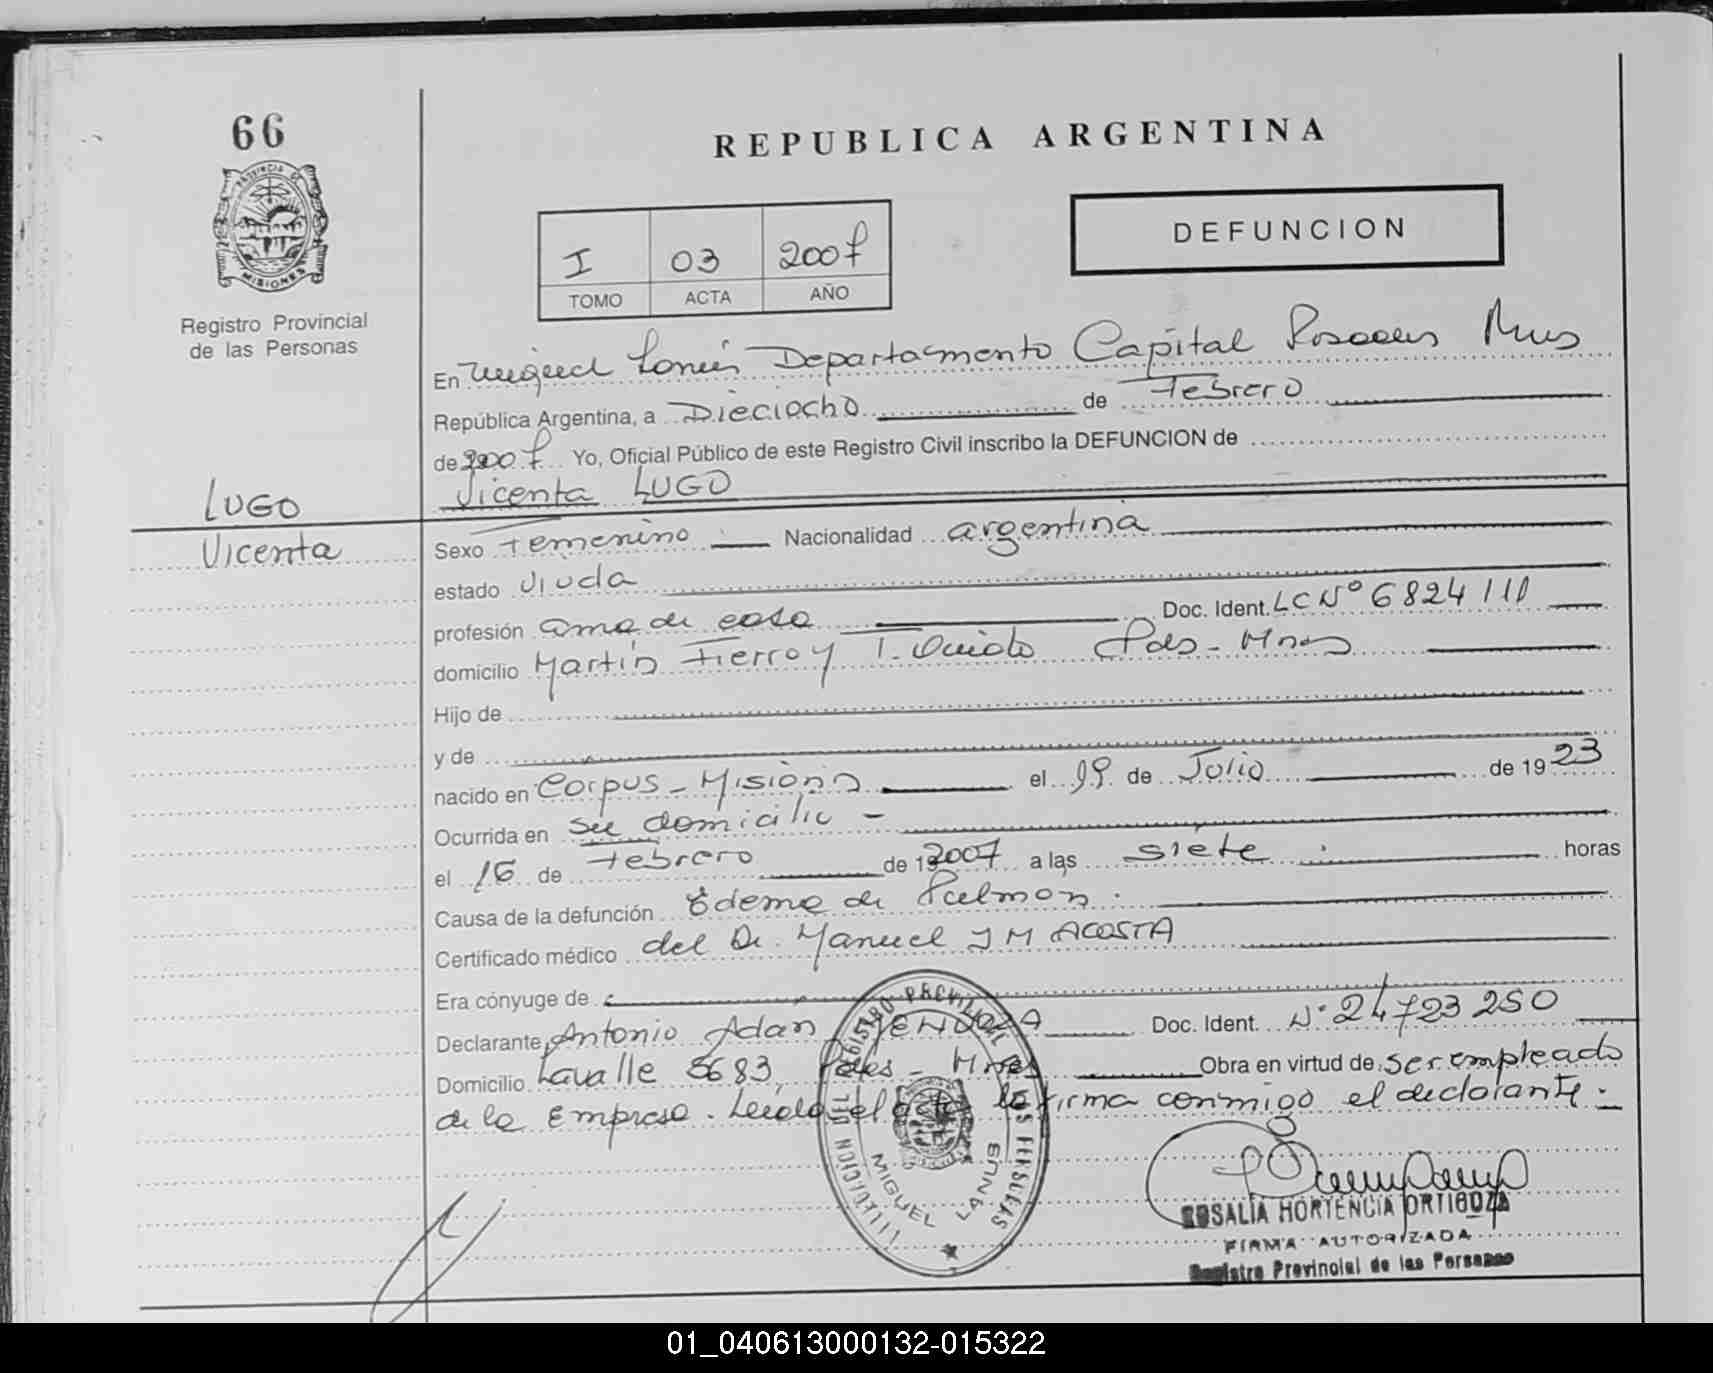 66
REPUBLICA ARGENTINA
PROVINCIA DE
MISIONES
Registro Provincial
de las Personas
I 03 2007
TOMO ACTA AÑO
DEFUNCION
En Miguel Lanús Departamento Capital Posadas Mnes
República Argentina, a Dieciocho de Febrero
de 2007 Yo, Oficial Público de este Registro Civil inscribo la DEFUNCION de
Vicenta LUGO
LUGO
Vicenta
Sexo Femenino . Nacionalidad argentina
estado viuda
profesión ama de casa Doc. Ident. LC Nº 6824111
domicilio Martín Fierro y T. Pdas - Mnes
Hijo de
y de
nacido en Corpus - Misiones el 19 de Julio de 1923
Ocurrida en su domicilio -
el 16 de febrero de 192007 a las siete . horas
Causa de la defunción Edema de Pulmon .
Certificado médico del Dr. Manuel J M ACOSTA
Era cónyuge de
Declarante Antonio Adan Doc. Ident. Nº 24723250
Domicilio Lavalle 5683, Pdas - Mnes Obra en virtud de ser empleado
de la Empresa . Leida el acta la firma conmigo el declarante . -
DEL REGISTRO PROVINCIAL DE LAS PERSONAS
MIGUEL LANUS
ROSALIA HORTENCIA ORTIGOZA
FIRMA AUTORIZADA
Registro Provincial de las Personas
01_040613000132-015322